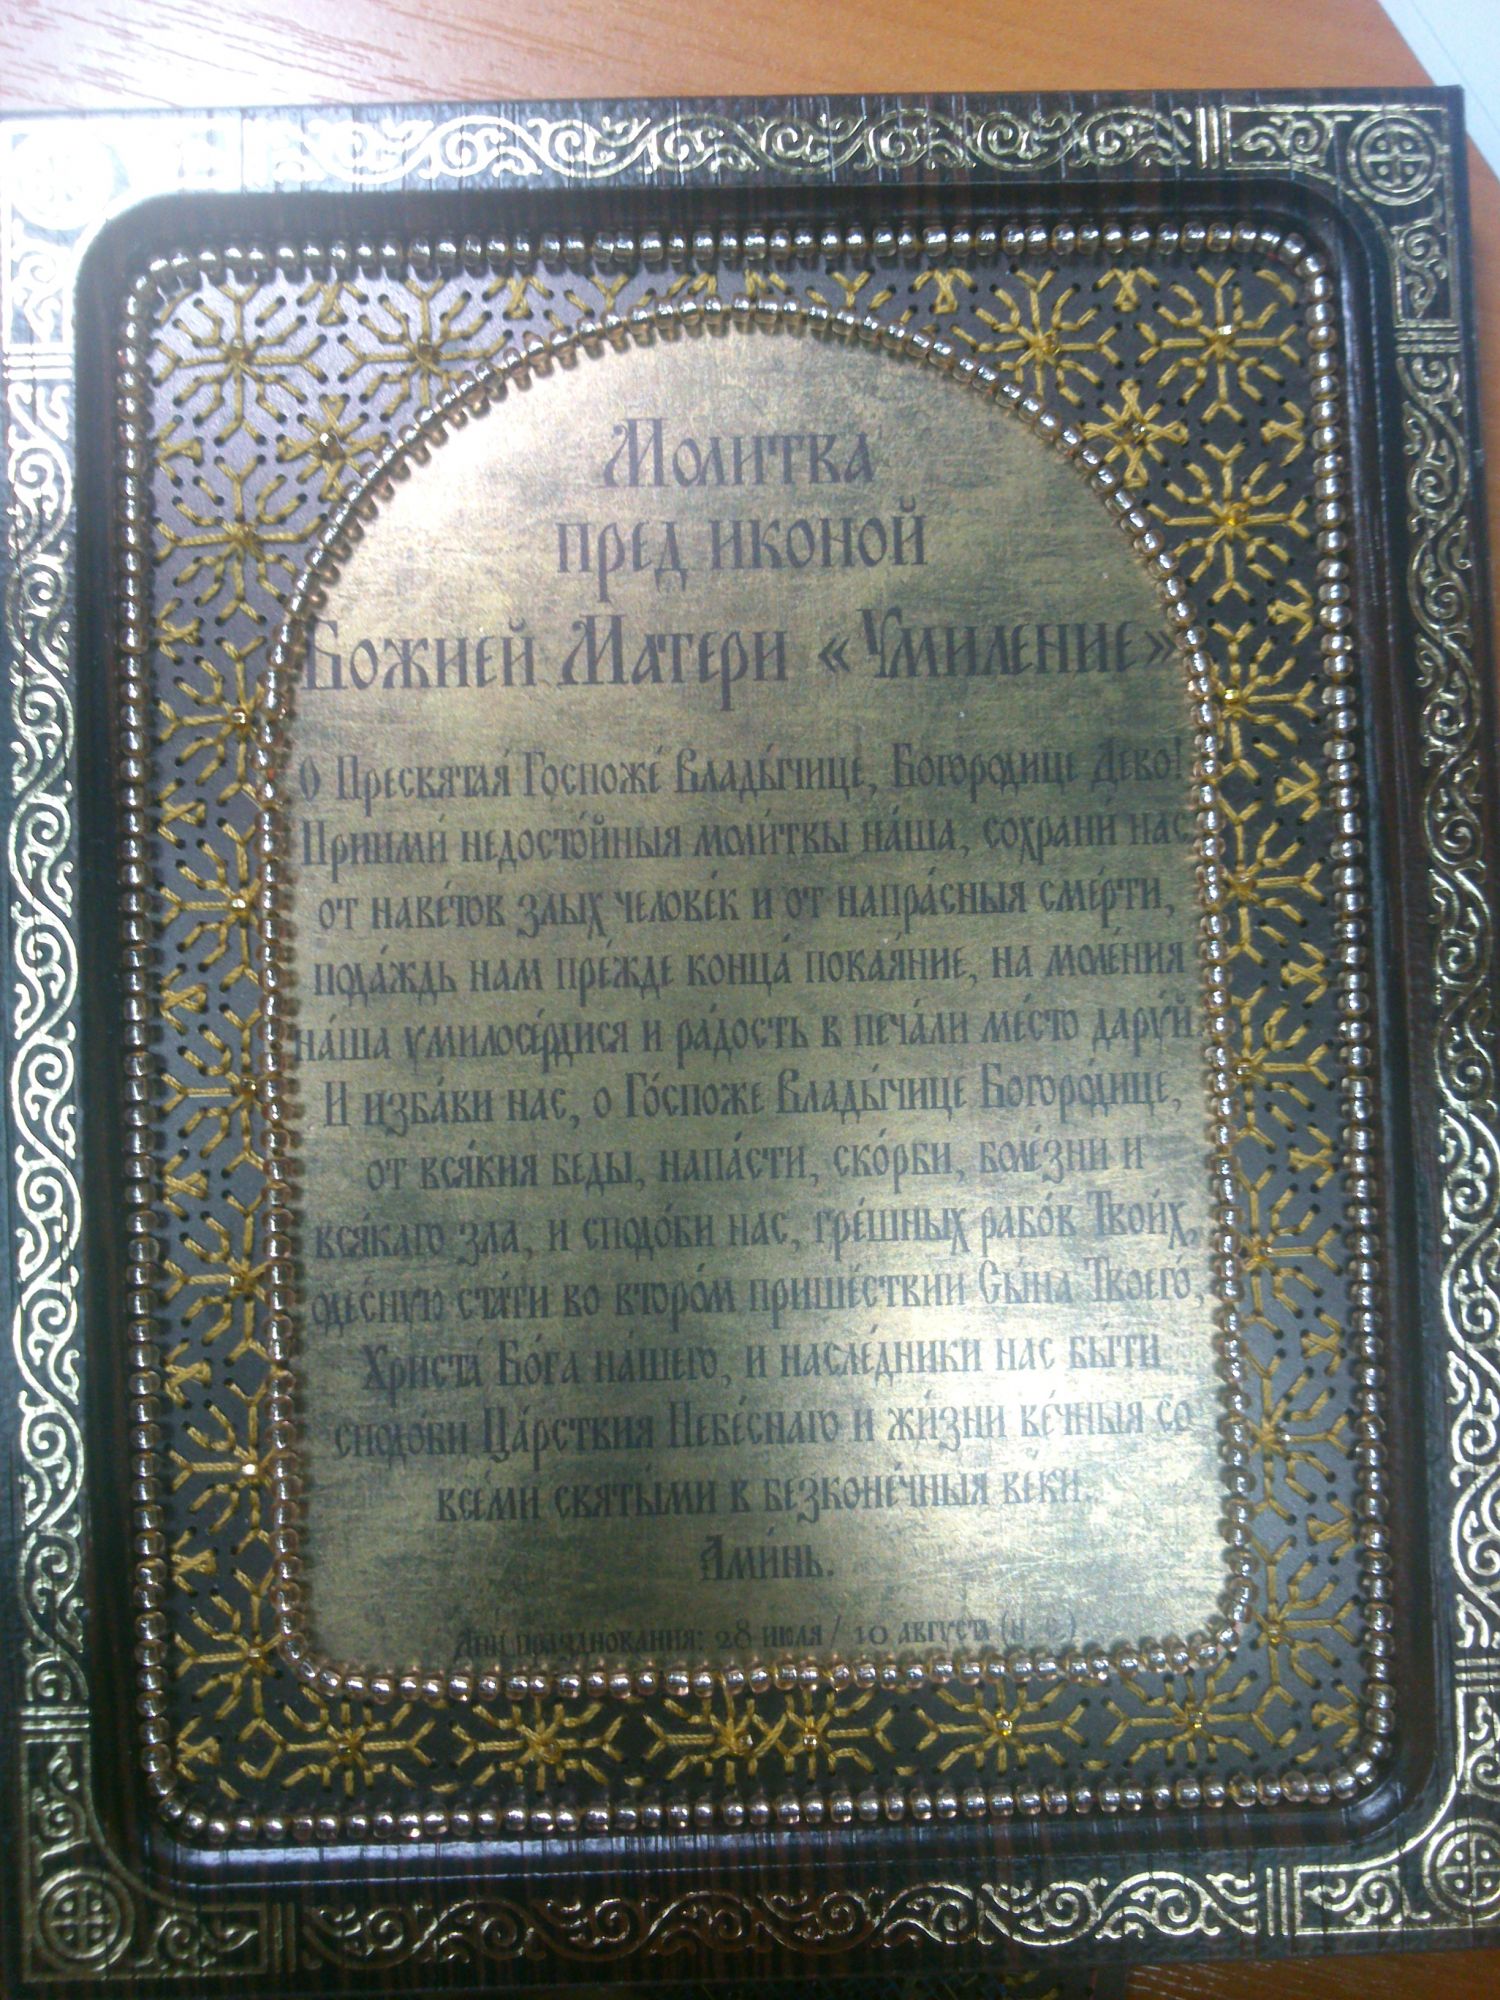 Молитва
пред иконой
Божией Матери «Умиление»
О Пресвята́я Госпоже́ Влады́чице, Богородице Дево!
Приими́ недосто́йныя моли́твы на́ша, сохрани́ нас
от наве́тов злых челове́к и от напра́сныя сме́рти,
пода́ждь нам пре́жде конца́ покая́ние, на моле́ния
на́ша умилосе́рдися и ра́дость в печа́ли ме́сто дару́й.
И изба́ви нас, о Го́споже Влады́чице Богоро́дице,
от вся́кия беды, напа́сти, ско́рби, боле́зни и
вся́каго зла, и сподо́би нас, гре́шных рабо́в Твои́х,
оде́сную ста́ти во второ́м прише́ствии Сы́на Твоего́,
Христа́ Бо́га на́шего, и насле́дники нас бы́ти
сподо́би Ца́рствия Небе́снаго и жи́зни ве́чныя со
все́ми святы́ми в безконе́чныя ве́ки.
Ами́нь.
Дни празднования: 28 июля / 10 августа (н. с.)